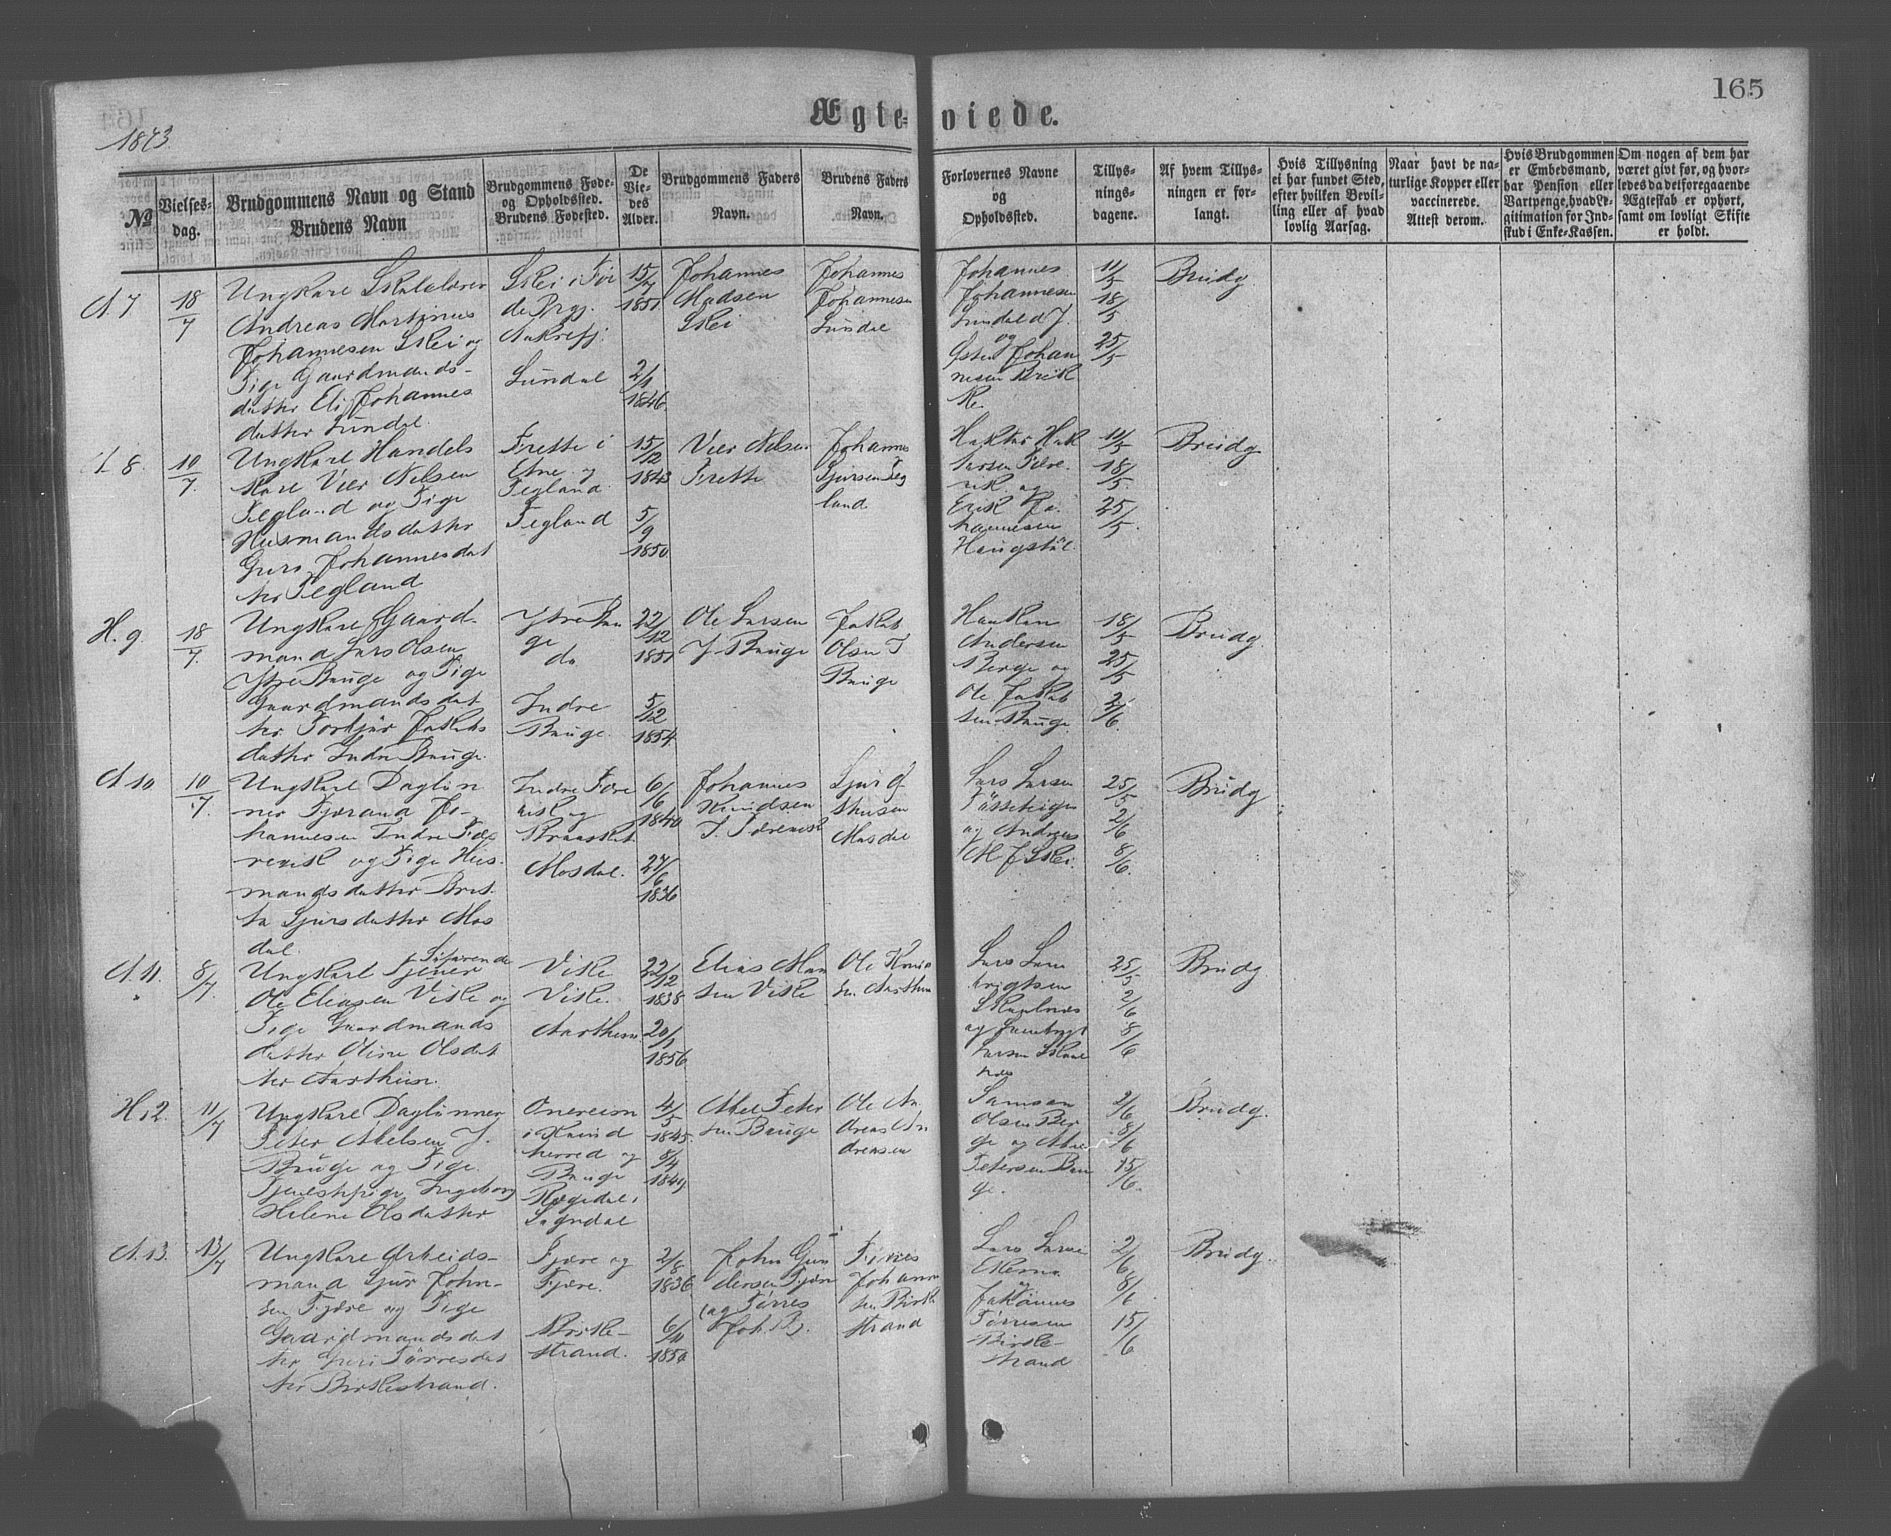 165
1873.
Ægte- viede.
No
Vielses-
dag.
Brudgommens Navn og Stand
Brudens Navn
Brudgommens Føde-
og Opholdssted.
Brudens Fødested.
De
Vie-
des
Alder.
Brudgommens Faders
Navn.
Brudens Faders
Navn.
Forlovernes Navne
og
Opholdssted.
Tillys-
nings-
dagene.
Af hvem Tillys-
ningen er for-
langt.
Hvis Tillysning
ei har fundet Sted,
efter hvilken Bevil-
ling eller af hvad
lovlig Aarsag.
Naar havt de na-
turlige Kopper eller
vaccinerede.
Attest derom.
Hvis Brudgommen
er Embedsmand,
har Pension eller
Vartpenge, hvad Le-
gitimation for Ind-
skud i Enke-Kassen.
Om nogen af dem har
været gift før, og hvor-
ledes da det foregaaende
Ægteskab er ophørt,
samt om lovligt Skifte
er holdt.
A. 7
18/7
Ungkarl Skolelærer
Andreas Martinus
Johannesen Skei og
Pige Gaardmands-
datter Eli Johannes
datter Lundal.
Skei i Før
de Prgj.
Aakrefj.
Lundal
15/7
1851.
2/1
1846.
Johannes
Madsen
Skei
Johannes
Johannesen
Lundal
Johannes
Johannesen
Lundal d. J.
og
Østen Johan
nesen Brek
ke.
11/5
18/5
25/5
Brudg.
8.
10/7.
Ungkarl Handels
karl Vier Nilsen
Tegland og Pige
Husmandsdatter
Guro Johannesdat
ter Tegland
Frette i
Etne og
Tegland.
Tegland
15/12
1843
5/9
1850.
Vier Nilsen
Frette
Johannes
Sjursen Teg
land
Haktor Hak
torsen Fære
vik og
Erik Jo
hannesen
Haugstøl.
11/5
18/5.
25/5.
Brudg.
H. 9
18/7.
Ungkarl Gaard-
mand Lars Olsen
Ytre Bauge og Pige
Gaardmandsdat
ter Torbjør Jakobs
datter Indre Bauge.
Ytre Bau
ge
do
Indre
Bauge.
22/12
1851
5/12
1854.
Ole Larsen
Y. Bauge
Jakob
Olsen I.
Bauge
Haakon
Andersen
Berge og
Ole Jakob
sen Bauge.
18/5
25/5
2/6.
Brudg.
A. 10.
10/7.
Ungkarl Dagløn
ner Tjerand Jo-
hannesen Indre Fæ
revik og Pige Hus-
mandsdatter Brit-
ta Sjursdatter Mos
dal.
Indre Fære
vik og
Mosdal.
6/6
1840
27/6
1836
Johannes
Knudsen
I. Færevik
Sjur Gj
thusen
Mosdal
Lars Larsen
og Andreas
M. J. Skei.
25/5
2/6
8/6.
Brudg.
A. 11.
8/7.
Ungkarl Tjener
Ole Eliasen Viske og
Pige Gaardmands
datter Oline Olsdat
ter Aarthun.
Viske
Viske.
Aarthun
22/12
1838
20/1
1856.
Elias Mon
sen Viske
Ole
sen Aarthun
Lars Lam
brigtsen
Skaalnæs
og Lambrigt
Larsen Skaal
næs
25/5
2/6
8/6
Brudg
H. 12.
11/7
Ungkarl Daglønner
Peter Abelsen I.
Bauge og Pige
Tjenestepige Ingeborg
Helene Olsdatter
i Kvind
herred og
Bauge
Rægedal i
Sogndal
4/5
1845.
8/4
1849.
Abel Peter
sen Bauge
Ole An
dreas An
dreasen
Samson
Olsen Ber
ge og Abel
Petersen Bau
ge.
2/6
8/6
15/6.
Brudg.
A. 13.
13/7
Ungkarl Arbeids-
mand Sjur John-
sen Fjære og Pige
Gaardmandsdat
ter Guri Tørresdat
ter Birkestrand.
Fjære og
Fjære.
Birke-
strand.
2/8
1836
6/11
1850.
John Gun
dersen Fjære
(og Tørres
Joh. B.)
Tørres
Johanne
sen Birke
strand
Lars Larsen
Ekernæ
og
Johannes
Tørresen
Birke-
strand
2/6
8/6
15/6
Brudg.